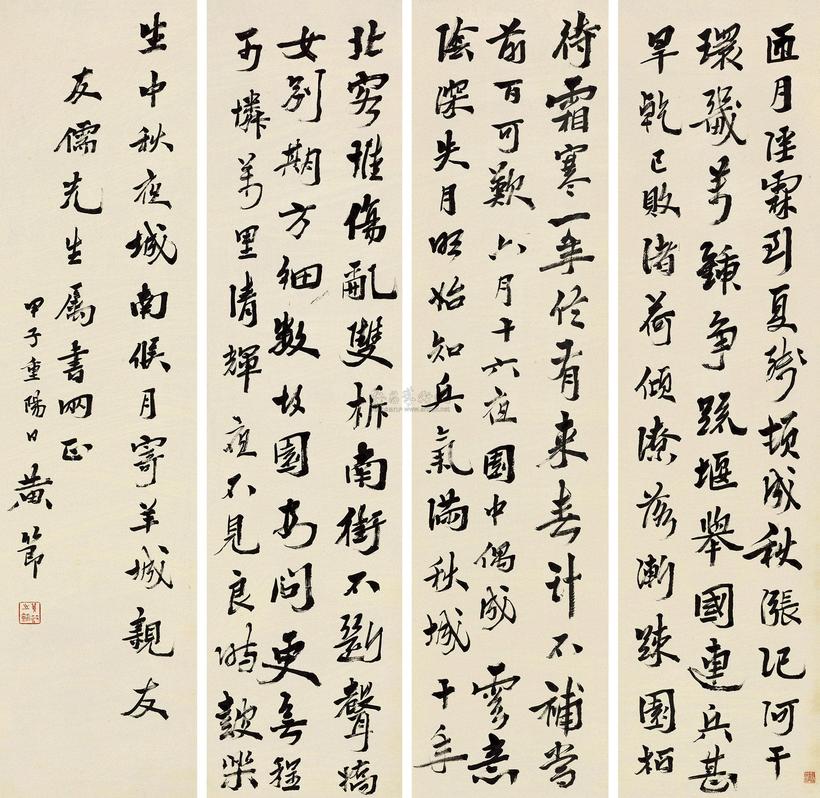 匝月淫霖到夏殘頓成秋漲記河干
環畿萬鍤爭疏堰舉國連兵甚
旱乾已敗渚荷傾潦落漸疎園柏
待霜寒一年任有來春計不補當
前百可歎六月十六夜園中偶成雲意
陰深失月明始知兵氣滿秋城十年
北客惟傷亂雙柝南街不斷聲嬌
女別期方細數故園安問更無程
可憐萬里清輝夜不見良時鼓樂
生中秋夜城南候月寄羊城親友
友儒先生屬書哂正
甲子重陽日黃節